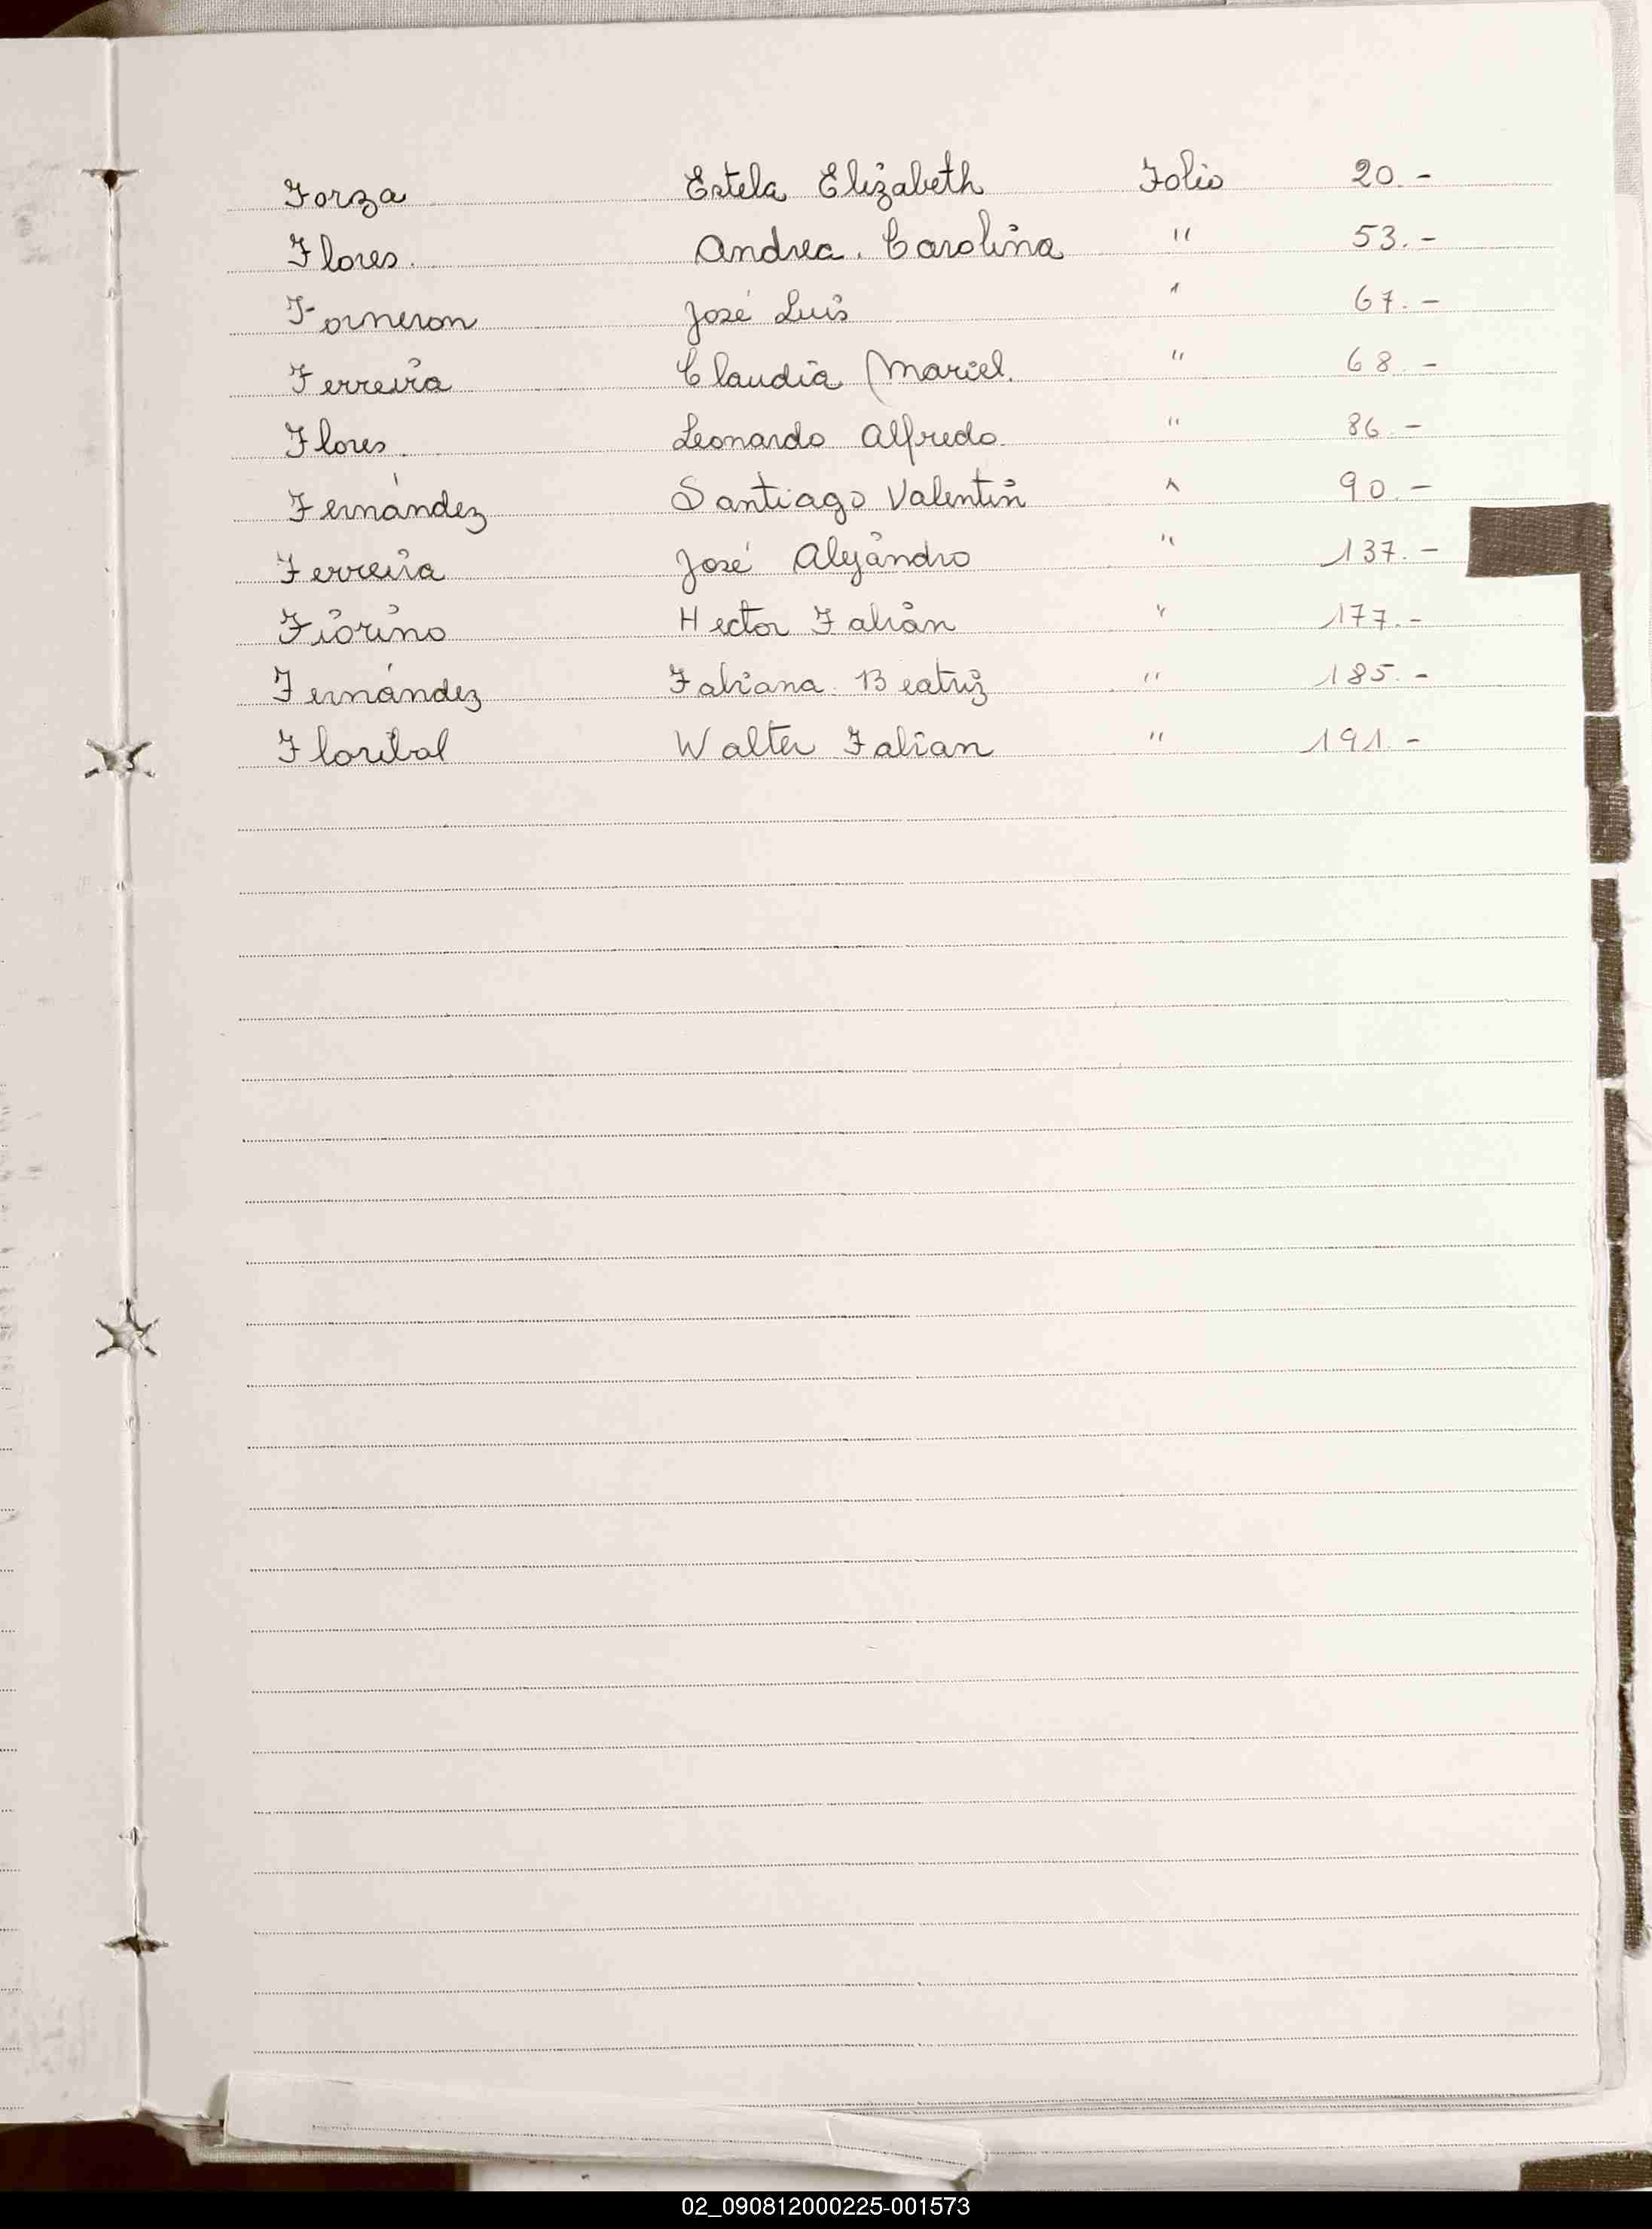 Forza Estela Elizabeth Folio 20.-
Flores. Andrea. Carolina " 53.-
Forneron José Luis " 67.-
Ferreira Claudia Mariel. " 68.-
Flores. Leonardo Alfredo. " 86.-
Fernández Santiago Valentin " 90.-
Ferreira José Alejandro " 137.-
Fiorino Hector Fabián " 177.-
Fernández Fabiana Beatriz " 185.-
Floribal Walter Fabian " 191.-
02_090812000225-001573